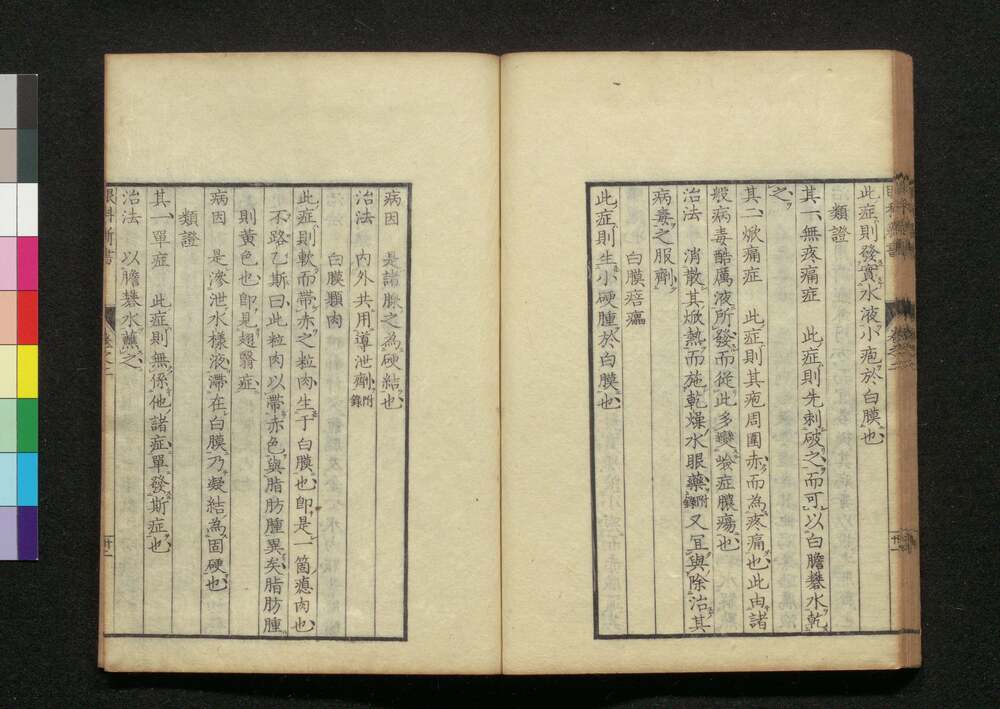 此症則發實水液小疱於白膜也
類證
其一無疼痛症　此症則先刺破之而可以白膽礬水乾
之
其二焮痛症　此症則其疱周圍赤而為疼痛也此由諸
般病毒酷厲液所發而從此多變發症膿瘍也
治法　消散其焮熱而施乾燥水眼藥附錄又宜與除治其
病毒之服劑
白膜瘖瘟
此症則生小硬腫於白膜也
病因　是諸膿之為硬結也
治法　內外共用導泄劑附錄
白膜顆肉
此症則軟而帶赤之粒肉生于白膜也即是一箇瘜肉也
不路乙斯曰此粒肉以帶赤色與脂肪腫異矣脂肪腫
則黃色也即見翅翳症
病因　是滲泄水樣液滯在白膜乃凝結為固硬也
類證
其一單症　此症則無係他諸症單發斯症也
治法　以膽礬水蘸之
眼科新書　卷之二